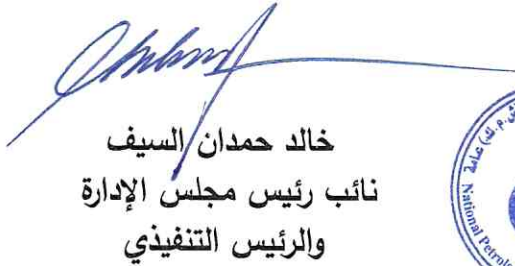 خالد حمدان السيف
نائب رئيس مجلس الإدارة
والرئيس التنفيذي
(ش.م.ك) عامة
National Petrol